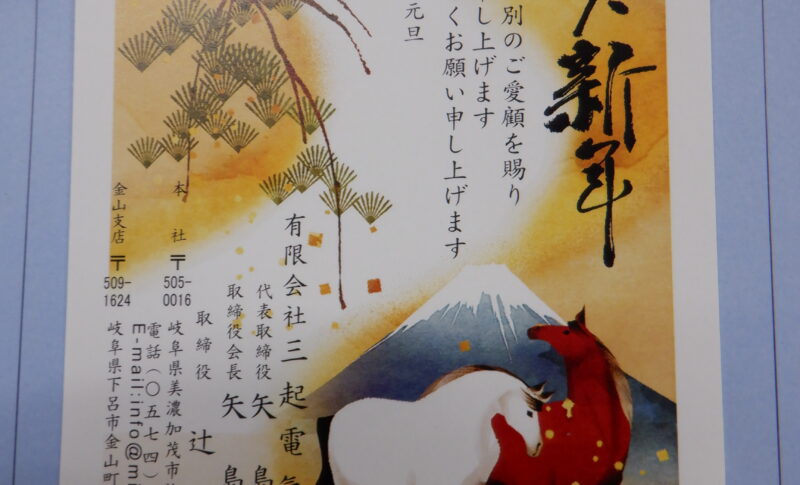 新年
別のご愛顧を賜り
し上げます
くお願い申し上げます
元旦
有限会社三起電気
代表取締役 矢島
取締役会長 矢島
取締役 辻
本社 〒505-0016 岐阜県美濃加茂市
電話(〇五七四)
E-mail:info@m
金山支店 〒509-1624 岐阜県下呂市金山町